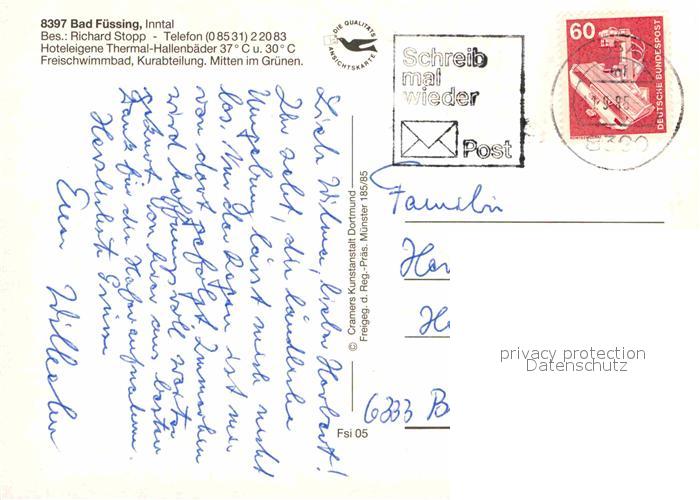 8397 Bad Füssing, Inntal
Bes.: Richard Stopp - Telefon (0 85 31) 2 20 83
Hoteleigene Thermal-Hallenbäder 37° C u. 30° C
Freischwimmbad, Kurabteilung. Mitten im Grünen.
DIE QUALITÄTS
ANSICHTSKARTE
Schreib
mal
wieder
Post
60
DEUTSCHE BUNDESPOST
Liebe Wilma, lieber Herbert!
Ihr seht, die ländliche
Umgebung lässt mich nicht
los. Nur der Regen ist mir
von dort gefolgt. Immerhin
wird hoffnungsvoll weiter
gekurt. Von hier aus besten
Dank für die Haberaufnahme.
Herzlichste Grüsse
Euer Wilhelm
© Cramers Kunstanstalt Dortmund
Freigeg. d. Reg.-Präs. Münster 185/85
Fsi 05
Familie
Her
H
6333 B
privacy protection
Datenschutz